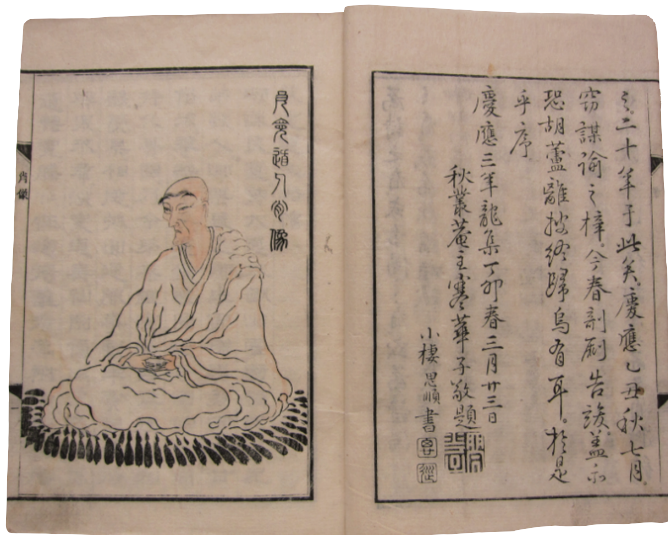 之二十年于此矣慶應乙丑秋七月
窃謀諭之梓。今春剞劂告竣蓋不
恐胡蘆離披終歸烏有耳。於是
乎序
慶應三年龍集丁卯春三月廿三日
秋叢菴主寒華子敬題
小棲思順書
道人肖像
肖像